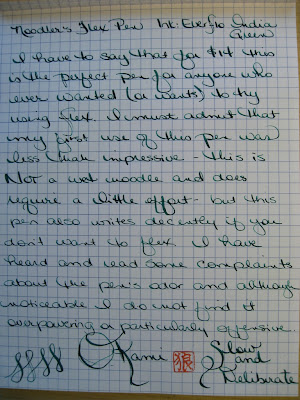 Noodler's Flex Pen Ink: Everflo India
Green
I have to say that for $14 this
is the perfect pen for anyone who
ever wanted (or wants) to try
using flex. I must admit that
my first use of this pen was
less than impressive - this is
NOT a wet noodle and does
require a little effort - but this
pen also writes decently if you
don't want to flex. I have
heard and read some complaints
about the pen's odor and although
noticeable I do not find it
overpowering or particularly offensive.
Okami 狼 Slow
and
Deliberate